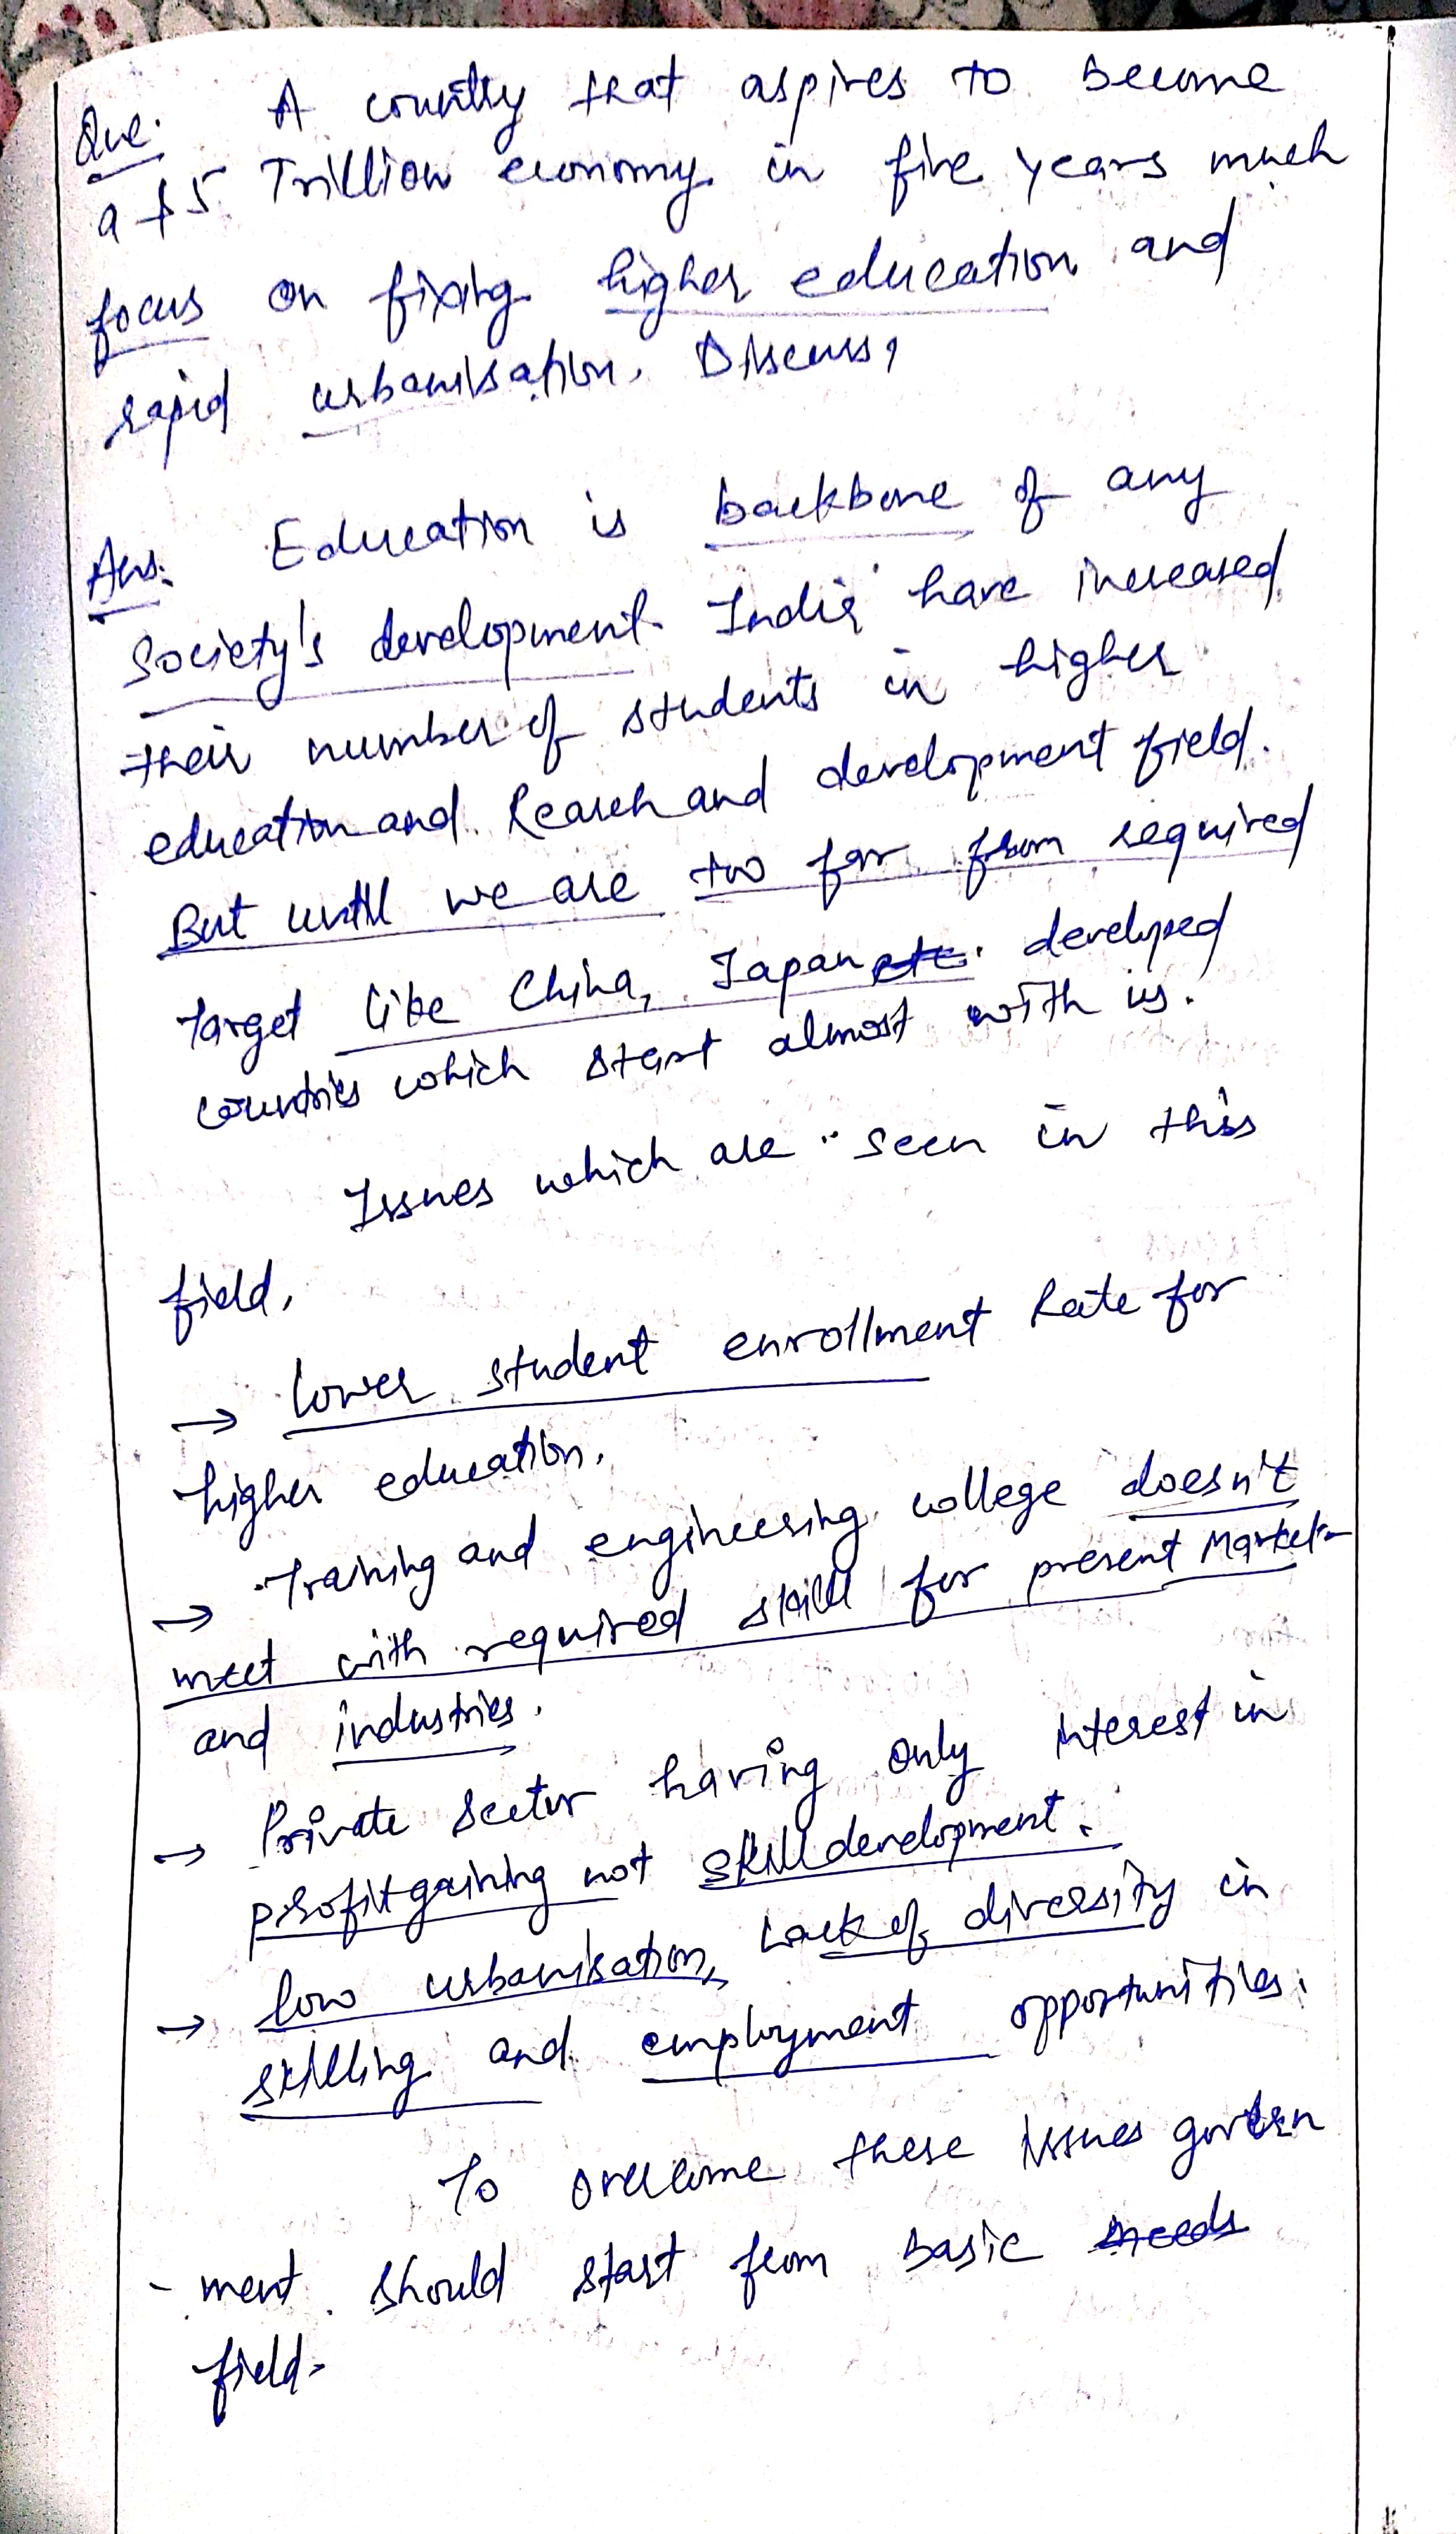 Que. A country that aspires to become
a $5 Trillion economy in five years much
focus on fixing higher education and
rapid urbanisation. Discuss,
Ans. Education is backbone of any
Society's development. India have increased
their number of students in higher
education and Reaseh and development field.
But until we are too far from required
target like China, Japan etc. developed
countries which start almost with us.
Issues which are seen in this
field,
→ lower student enrollment Rate for
higher education.
→ Training and engineering college doesn't
meet with required skill for present Market
and industries.
→ Private Sector having only interest in
profit gaining not skill development.
→ low urbanisation, Lack of diversity in
skilling and employment opportunities.
To overcome these issues govern
- ment should start from basic needs
field.